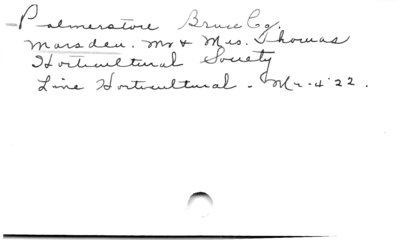 Palmerston Bruce Co.
Marsden. Mr & Mrs. Thomas
Horticultural Society
Line Horticultural - Mr. 4 '22.